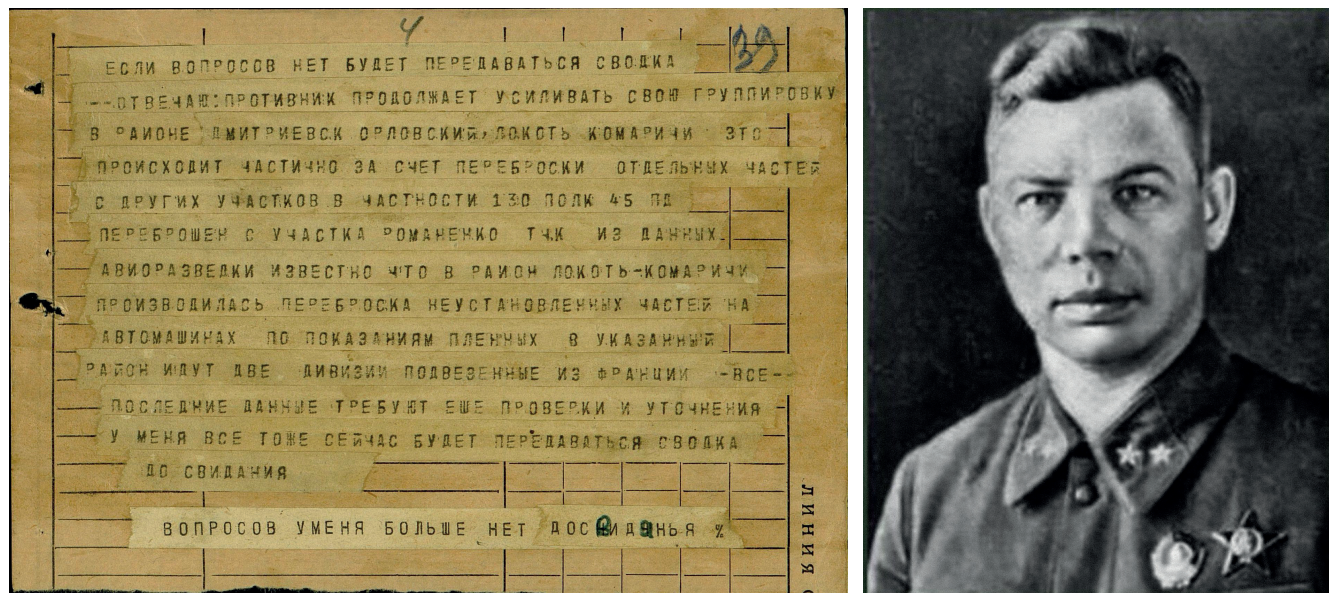 4
39
ЕСЛИ ВОПРОСОВ НЕТ БУДЕТ ПЕРЕДАВАТЬСЯ СВОДКА
--ОТВЕЧАЮ:ПРОТИВНИК ПРОДОЛЖАЕТ УСИЛИВАТЬ СВОЮ ГРУППИРОВКУ
В РАИОНЕ ДМИТРИЕВСК ОРЛОВСКИЙ,ЛОКОТЬ КОМАРИЧИ ЭТО
ПРОИСХОДИТ ЧАСТИЧНО ЗА СЧЕТ ПЕРЕБРОСКИ ОТДЕЛЬНЫХ ЧАСТЕЙ
С ДРУГИХ УЧАСТКОВ В ЧАСТНОСТИ 130 ПОЛК 45 ПД
ПЕРЕБРОШЕН С УЧАСТКА РОМАНЕНКО ТЧК ИЗ ДАННЫХ
АВИОРАЗВЕДКИ ИЗВЕСТНО ЧТО В РАИОН ЛОКОТЬ-КОМАРИЧИ
ПРОИЗВОДИЛАСЬ ПЕРЕБРОСКА НЕУСТАНОВЛЕННЫХ ЧАСТЕЙ НА
АВТОМАШИНАХ ПО ПОКАЗАНИЯМ ПЛЕННЫХ В УКАЗАННЫЙ
РАЙОН ИДУТ ДВЕ ДИВИЗИИ ПОДВЕЗЕННЫЕ ИЗ ФРАНЦИИ -ВСЕ--
ПОСЛЕДНИЕ ДАННЫЕ ТРЕБУЮТ ЕШЕ ПРОВЕРКИ И УТОЧНЕНИЯ -
У МЕНЯ ВСЕ ТОЖЕ СЕЙЧАС БУДЕТ ПЕРЕДАВАТЬСЯ СВОДКА
ДО СВИДАНИЯ
ВОПРОСОВ УМЕНЯ БОЛЬШЕ НЕТ ДОСВИДАНЬЯ %
ЛИНИЯ